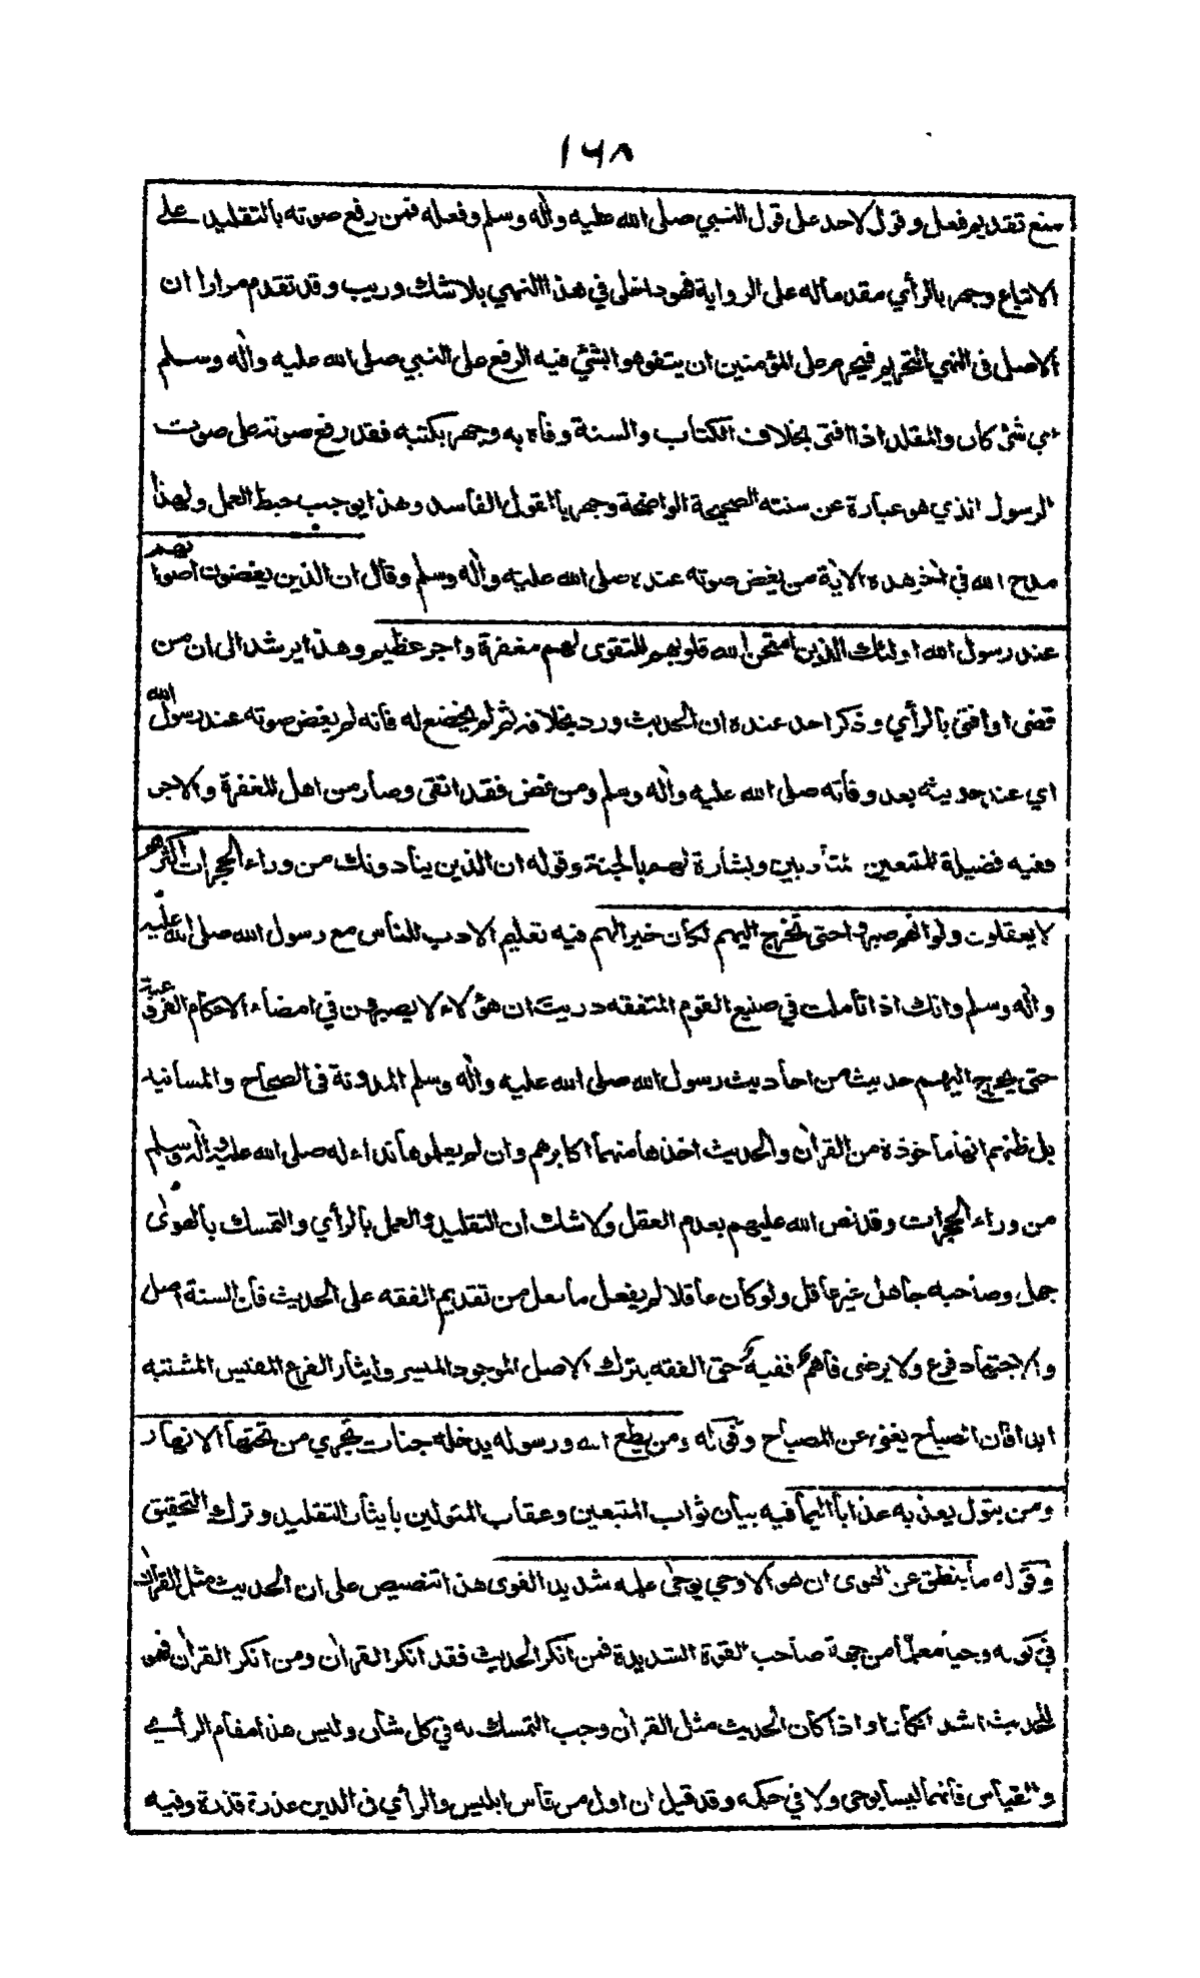 ١٦٨
منع تقديم فعل وقول لاحد على قول النبي صلى الله عليه واٰله وسلم وفعله فمن رفع صوته بالتقليد على
الاتباع وجهر بالرأي مقدما له على الرواية فهو داخل في هذا النهي بلا شك وريب وقد تقدم مرارا ان
الاصل فى النهي التحريم فيحرم على المؤمنين ان يتفوهوا بشئ فيه الرفع على النبي صلى الله عليه واٰله وسلم
اي شئ كان والمقلد اذا افتى بخلاف الكتاب والسنة وفاه به وجهر بكتبه فقد رفع صوته على صوت
الرسول الذي هو عبارة عن سنته الصحيحة الواضحة وجهر بالقول الفاسد وهذا يوجب حبط العمل ولهذا
مدح الله في اٰخر هذه الاٰية من يغض صوته عنده صلى الله عليه واٰله وسلم وقال ان الذين يغضون اصواتهم
عند رسول الله اولئك الذين امتحن الله قلوبهم للتقوى لهم مغفرة واجر عظيم وهذا يرشد الى ان من
قضى او افتى بالرأي وذكر احد عنده ان الحديث ورد بخلافه ثم لم يخضع له فانه لم يغض صوته عند رسول الله
اي عند حديثه بعد وفاته صلى الله عليه واٰله وسلم ومن غض فقد اتقى وصار من اهل المغفرة والاجر
ففيه فضيلة للمتبعين متأدبين وبشارة لهم بالجنة وقوله ان الذين ينادونك من وراء الحجرات اكثرهم
لا يعقلون ولو انهم صبروا حتى تخرج اليهم لكان خيرا لهم فيه تعليم الادب للناس مع رسول الله صلى الله عليه
واٰله وسلم وانك اذا تأملت في صنيع القوم المتفقه دريت ان هؤلاء لا يصبرون في امضاء الاحكام الفرعية
حتى يخرج اليهم حديث من احاديث رسول الله صلى الله عليه واٰله وسلم المدونة فى الصحاح والمسانيد
بل ظنهم انها مأخوذة من القراٰن والحديث اخذها منهما اكابرهم وان لم يعلموها نداء له صلى الله عليه واٰله وسلم
من وراء الحجرات وقد نص الله عليهم بعدم العقل ولا شك ان التقليد والعمل بالرأي والتمسك بالهوى
جهل وصاحبه جاهل غير عاقل ولو كان عاقلا لم يفعل ما فعل من تقديم الفقه على الحديث فان السنة اصل
والاجتهاد فرع ولا يرضى فاهم ففيه حتى الفقه بترك الاصل الموجود الميسر وايثار الفرع المشتبه
ابدا فان الصباح يغني عن المصباح وقوله ومن يطع الله ورسوله يدخله جنات تجري من تحتها الانهار
ومن يتول يعذبه عذابا اليما فيه بيان ثواب المتبعين وعقاب المتولين بايثار التقليد وترك التحقيق
وقوله ما ينطق عن الهوى ان هو الا وحي يوحى علمه شديد القوى هذا تنصيص على ان الحديث مثل القراٰن
في كونه وحيا معلما من جهة صاحب القوة الشديدة فمن انكر الحديث فقد انكر القراٰن ومن انكر القراٰن فهو
للحديث اشد انكارا واذا كان الحديث مثل القراٰن وجب التمسك به في كل شأن وليس هذا مقام الرأي
والقياس فانهما ليسا بوحي ولا في حكمه وقد قيل ان اول من قاس ابليس والرأي فى الدين عذرة قذرة وفيه